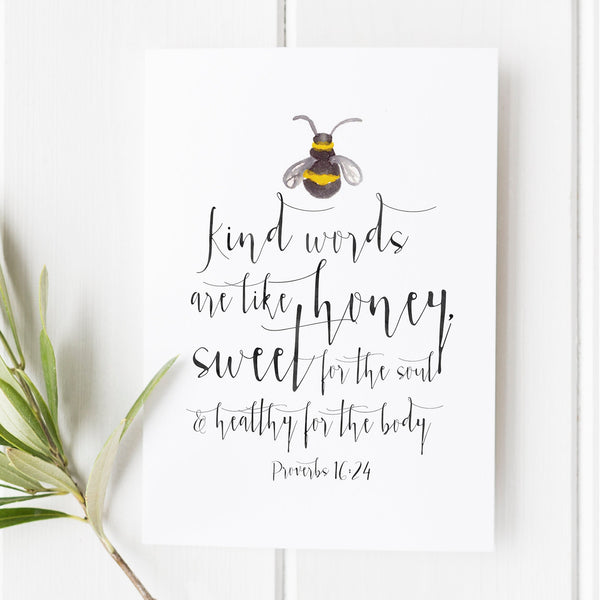 kind words
are like honey,
sweet for the soul
& healthy for the body
Proverbs 16:24